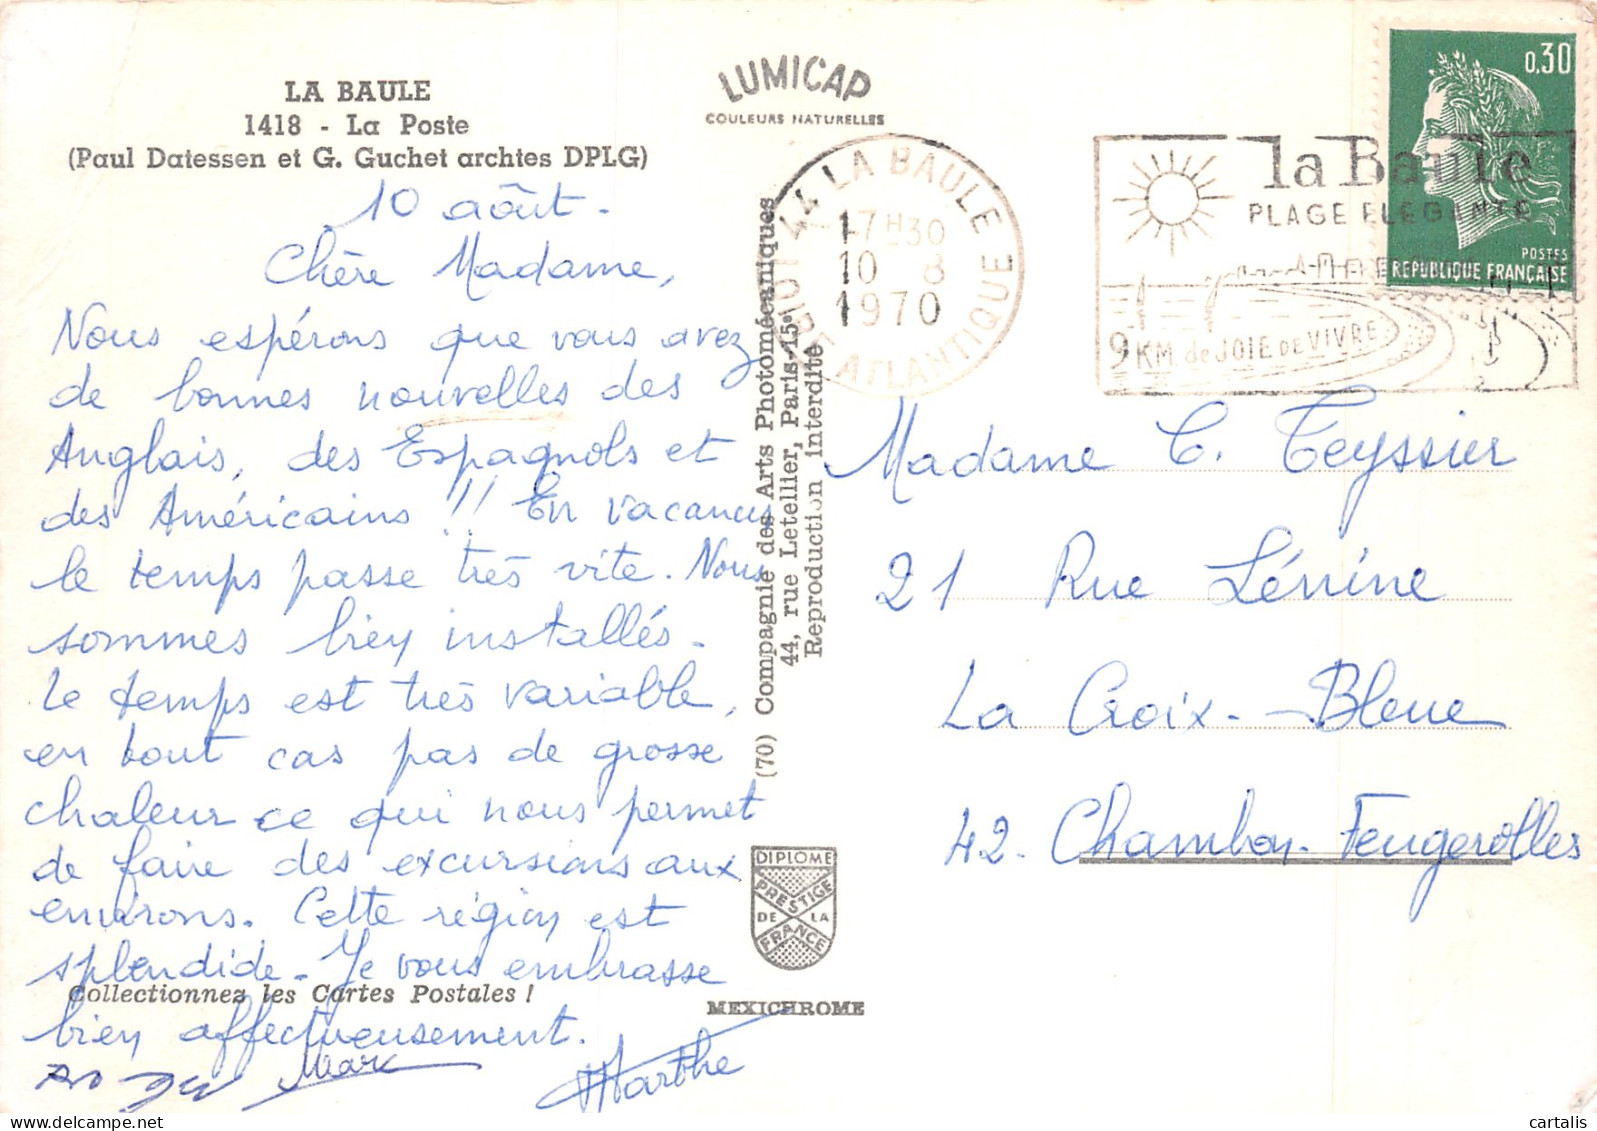 LA BAULE
1418 - La Poste
(Paul Datessen et G. Guchet archtes DPLG)
10 août.
Chère Madame,
Nous espérons que vous avez
de bonnes nouvelles des
Anglais, des Espagnols et
des Américains !! En vacances
le temps passe très vite. Nous
sommes bien installés.
Le temps est très variable,
en tout cas pas de grosse
chaleur ce qui nous permet
de faire des excursions aux
environs. Cette région est
splendide. Je vous embrasse
Collectionnez les Cartes Postales !
bien affectueusement.
Roger Marc Marthe
LUMICAP
COULEURS NATURELLES
(70) Compagnie des Arts Photomécaniques
44, rue Letellier, Paris-15e
Reproduction interdite
DIPLOME
PRESTIGE
DE LA
FRANCE
MEXICHROME
44 LA BAULE
17H30
10 8
1970
LOIRE ATLANTIQUE
la Baule
PLAGE ELEGANTE
9 KM. de JOIE DE VIVRE
0,30
POSTES
REPUBLIQUE FRANÇAISE
Madame C. Teyssier
21 Rue Lénine
La Croix-Bleue
42. Chambon-Feugerolles
cartalis